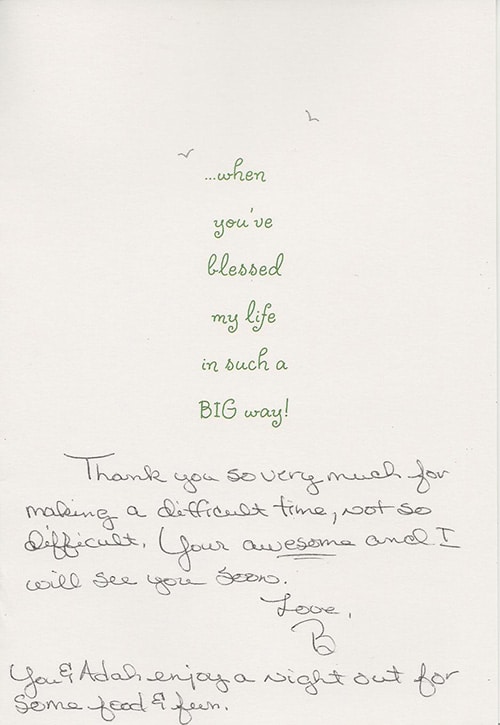 ...when
you've
blessed
my life
in such a
BIG way!
Thank you so very much for
making a difficult time, not so
difficult. Your awesome and I
will see you soon.
Love,
B
You & Adah enjoy a night out for
some food & fun.